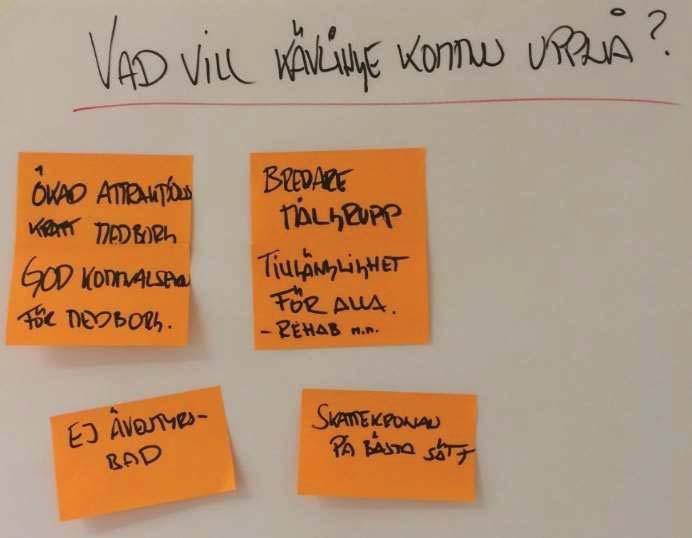 VAD VILL KÄVLINGE KOMMUN UPPNÅ?
ÖKAD ATTRAKTIONS
KRAFT MEDBORG
GOD KOMMUNAL SERVICE
FÖR MEDBORG.
BREDARE
MÅLGRUPP
TILLGÄNGLIGHET
FÖR ALLA.
- REHAB M.M.
EJ ÄVENTYRS-
BAD
SKATTEKRONAN
PÅ BÄSTA SÄTT